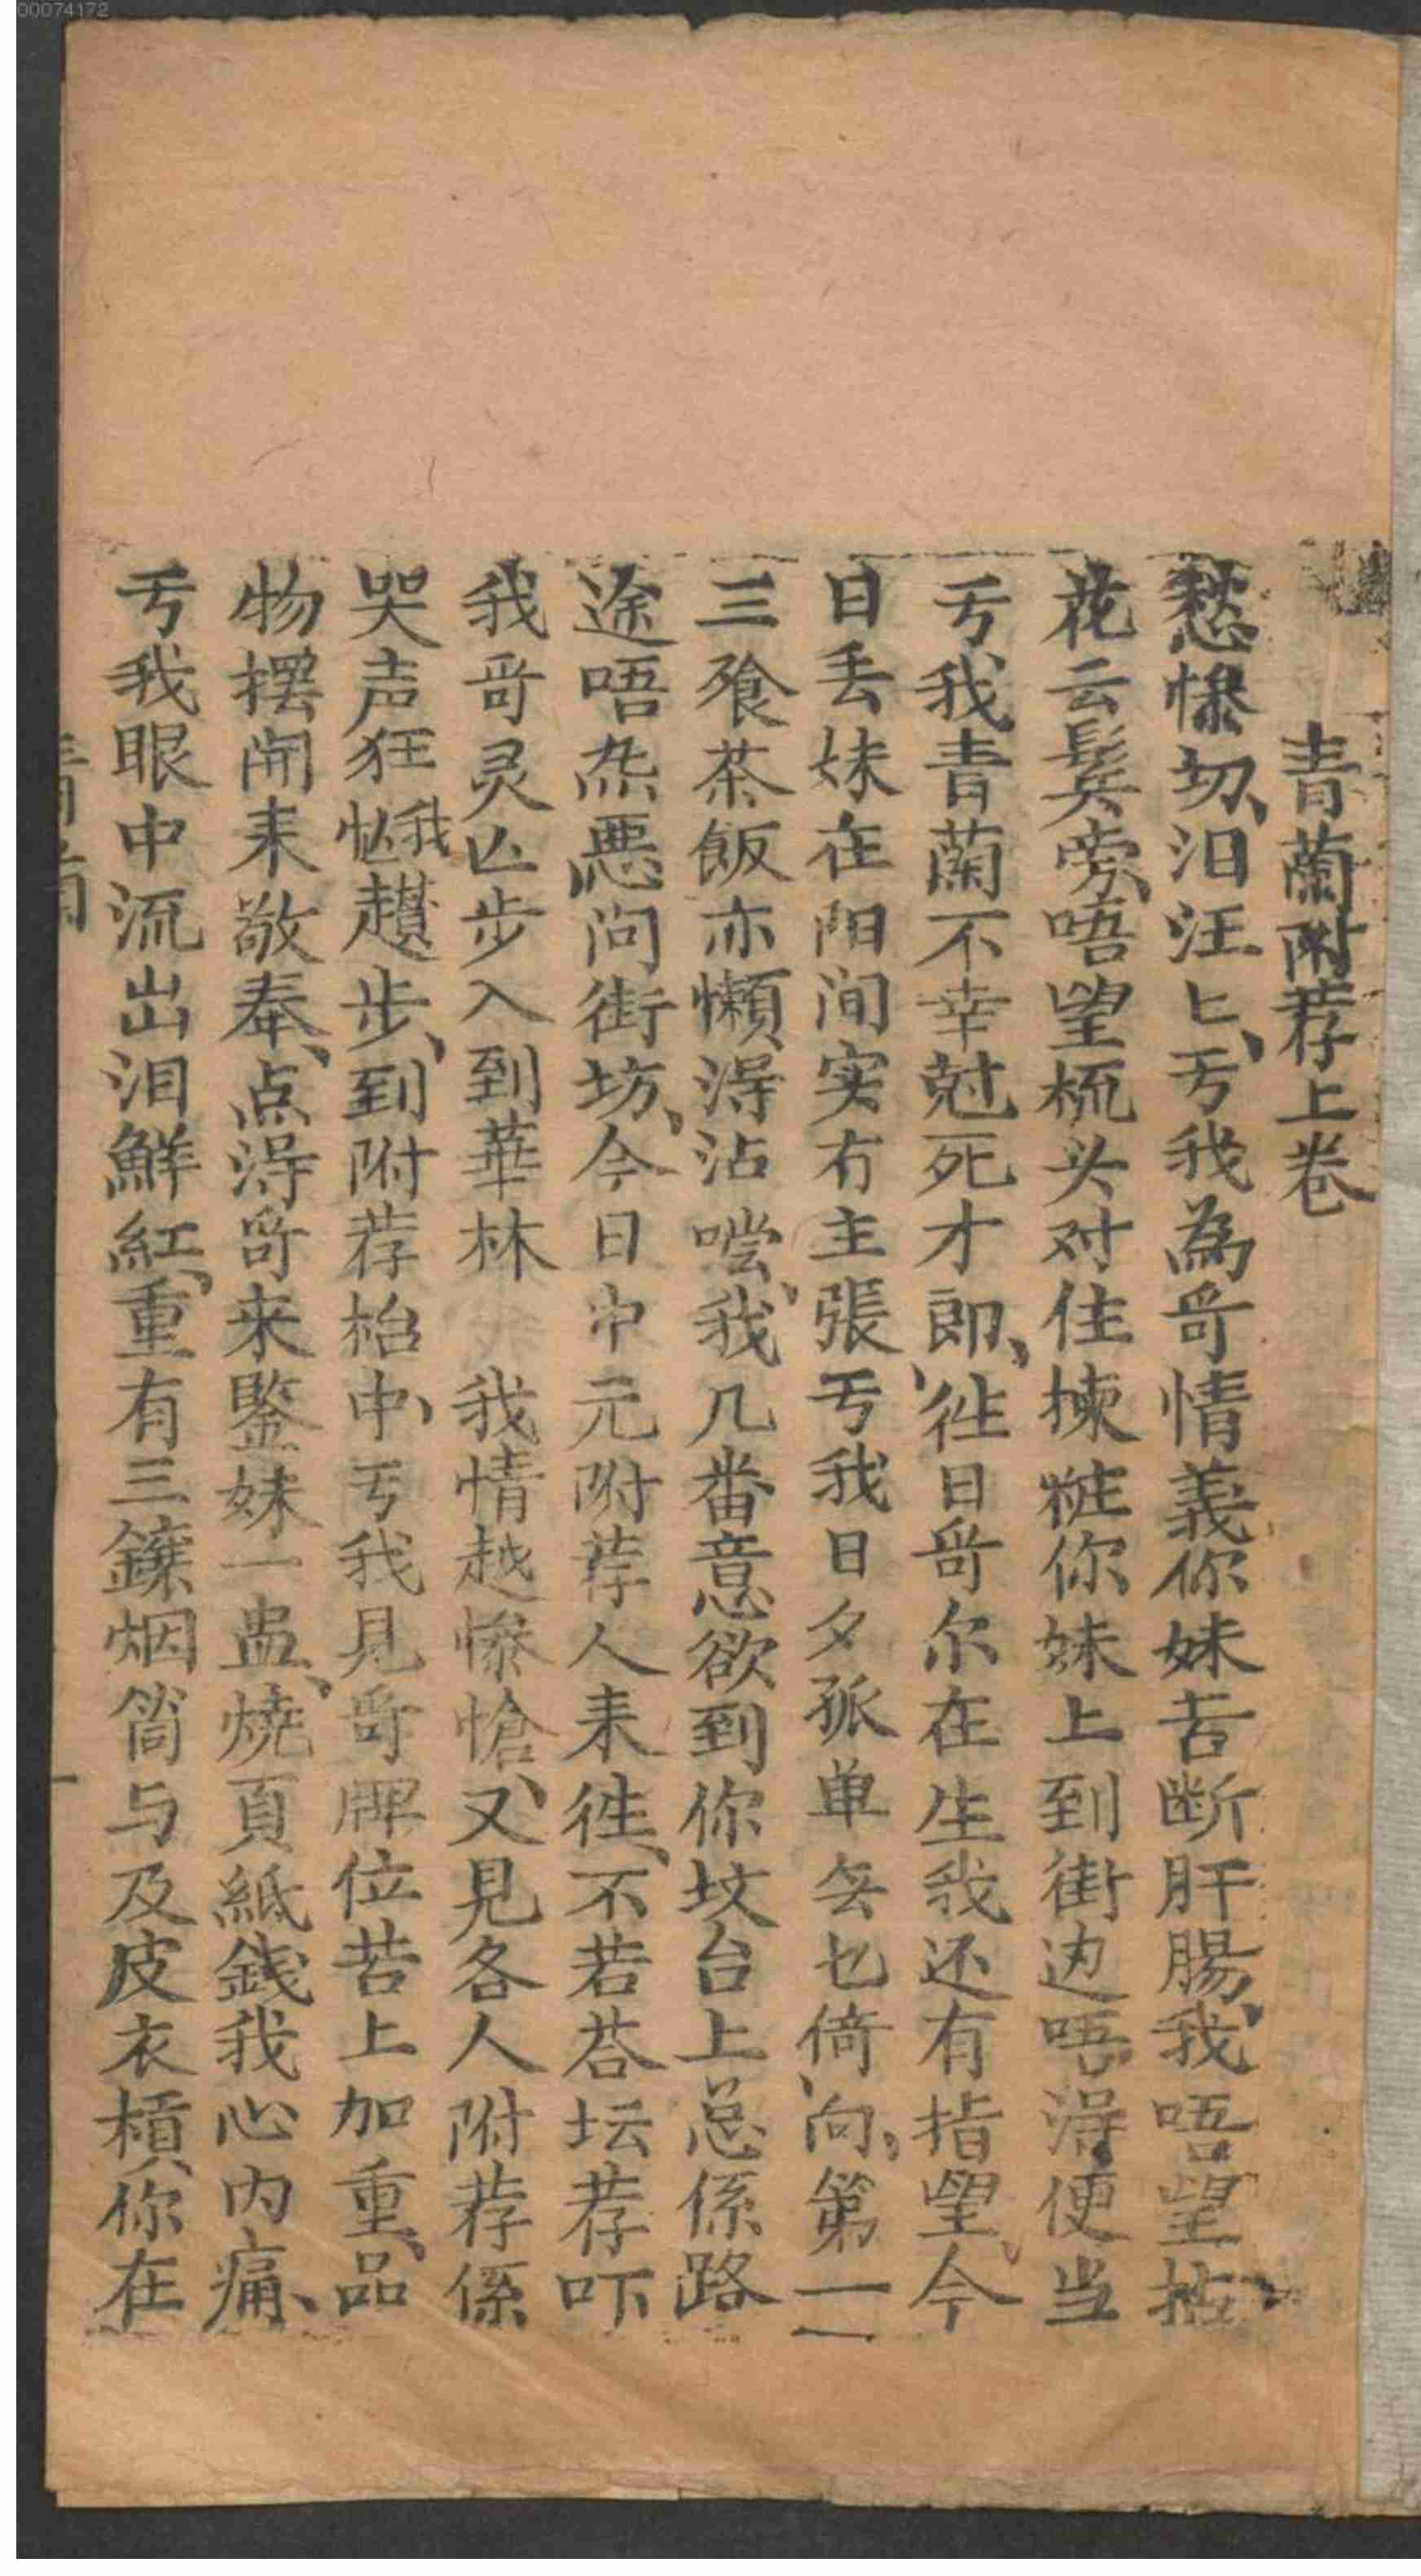 00074172
青蘭附荐上卷
愁惨切、汨汪〻、亐我為哥情義你妹苦断肝腸、我唔望拈
花云鬓旁、唔望梳头对住拣粧你妹上到街边唔淂便当
亐我青蘭不幸尅死才郎、往日哥尔在生我还有指望、今
日丢妹在阳间实冇主張亐我日夕孤单冇乜倚向、第一
三飡茶飯亦懶淂沾嚐、我几番意欲到你坟台上总係路
途唔𤋮悪问街坊、今日中元附荐人来往、不若荅坛荐吓
我哥灵亾步入到華林 我情越惨愴、又見各人附荐係
哭声狂㤐我趱步、到附荐枱中、亐我見哥牌位苦上加重、品
物摆闹来敬奉、点淂哥来鑒妹一盅、燒頁紙銭我心内痛、
亐我眼中流出泪鮮紅、重有三鑲烟筒与及皮衣槓你在
青蘭
一